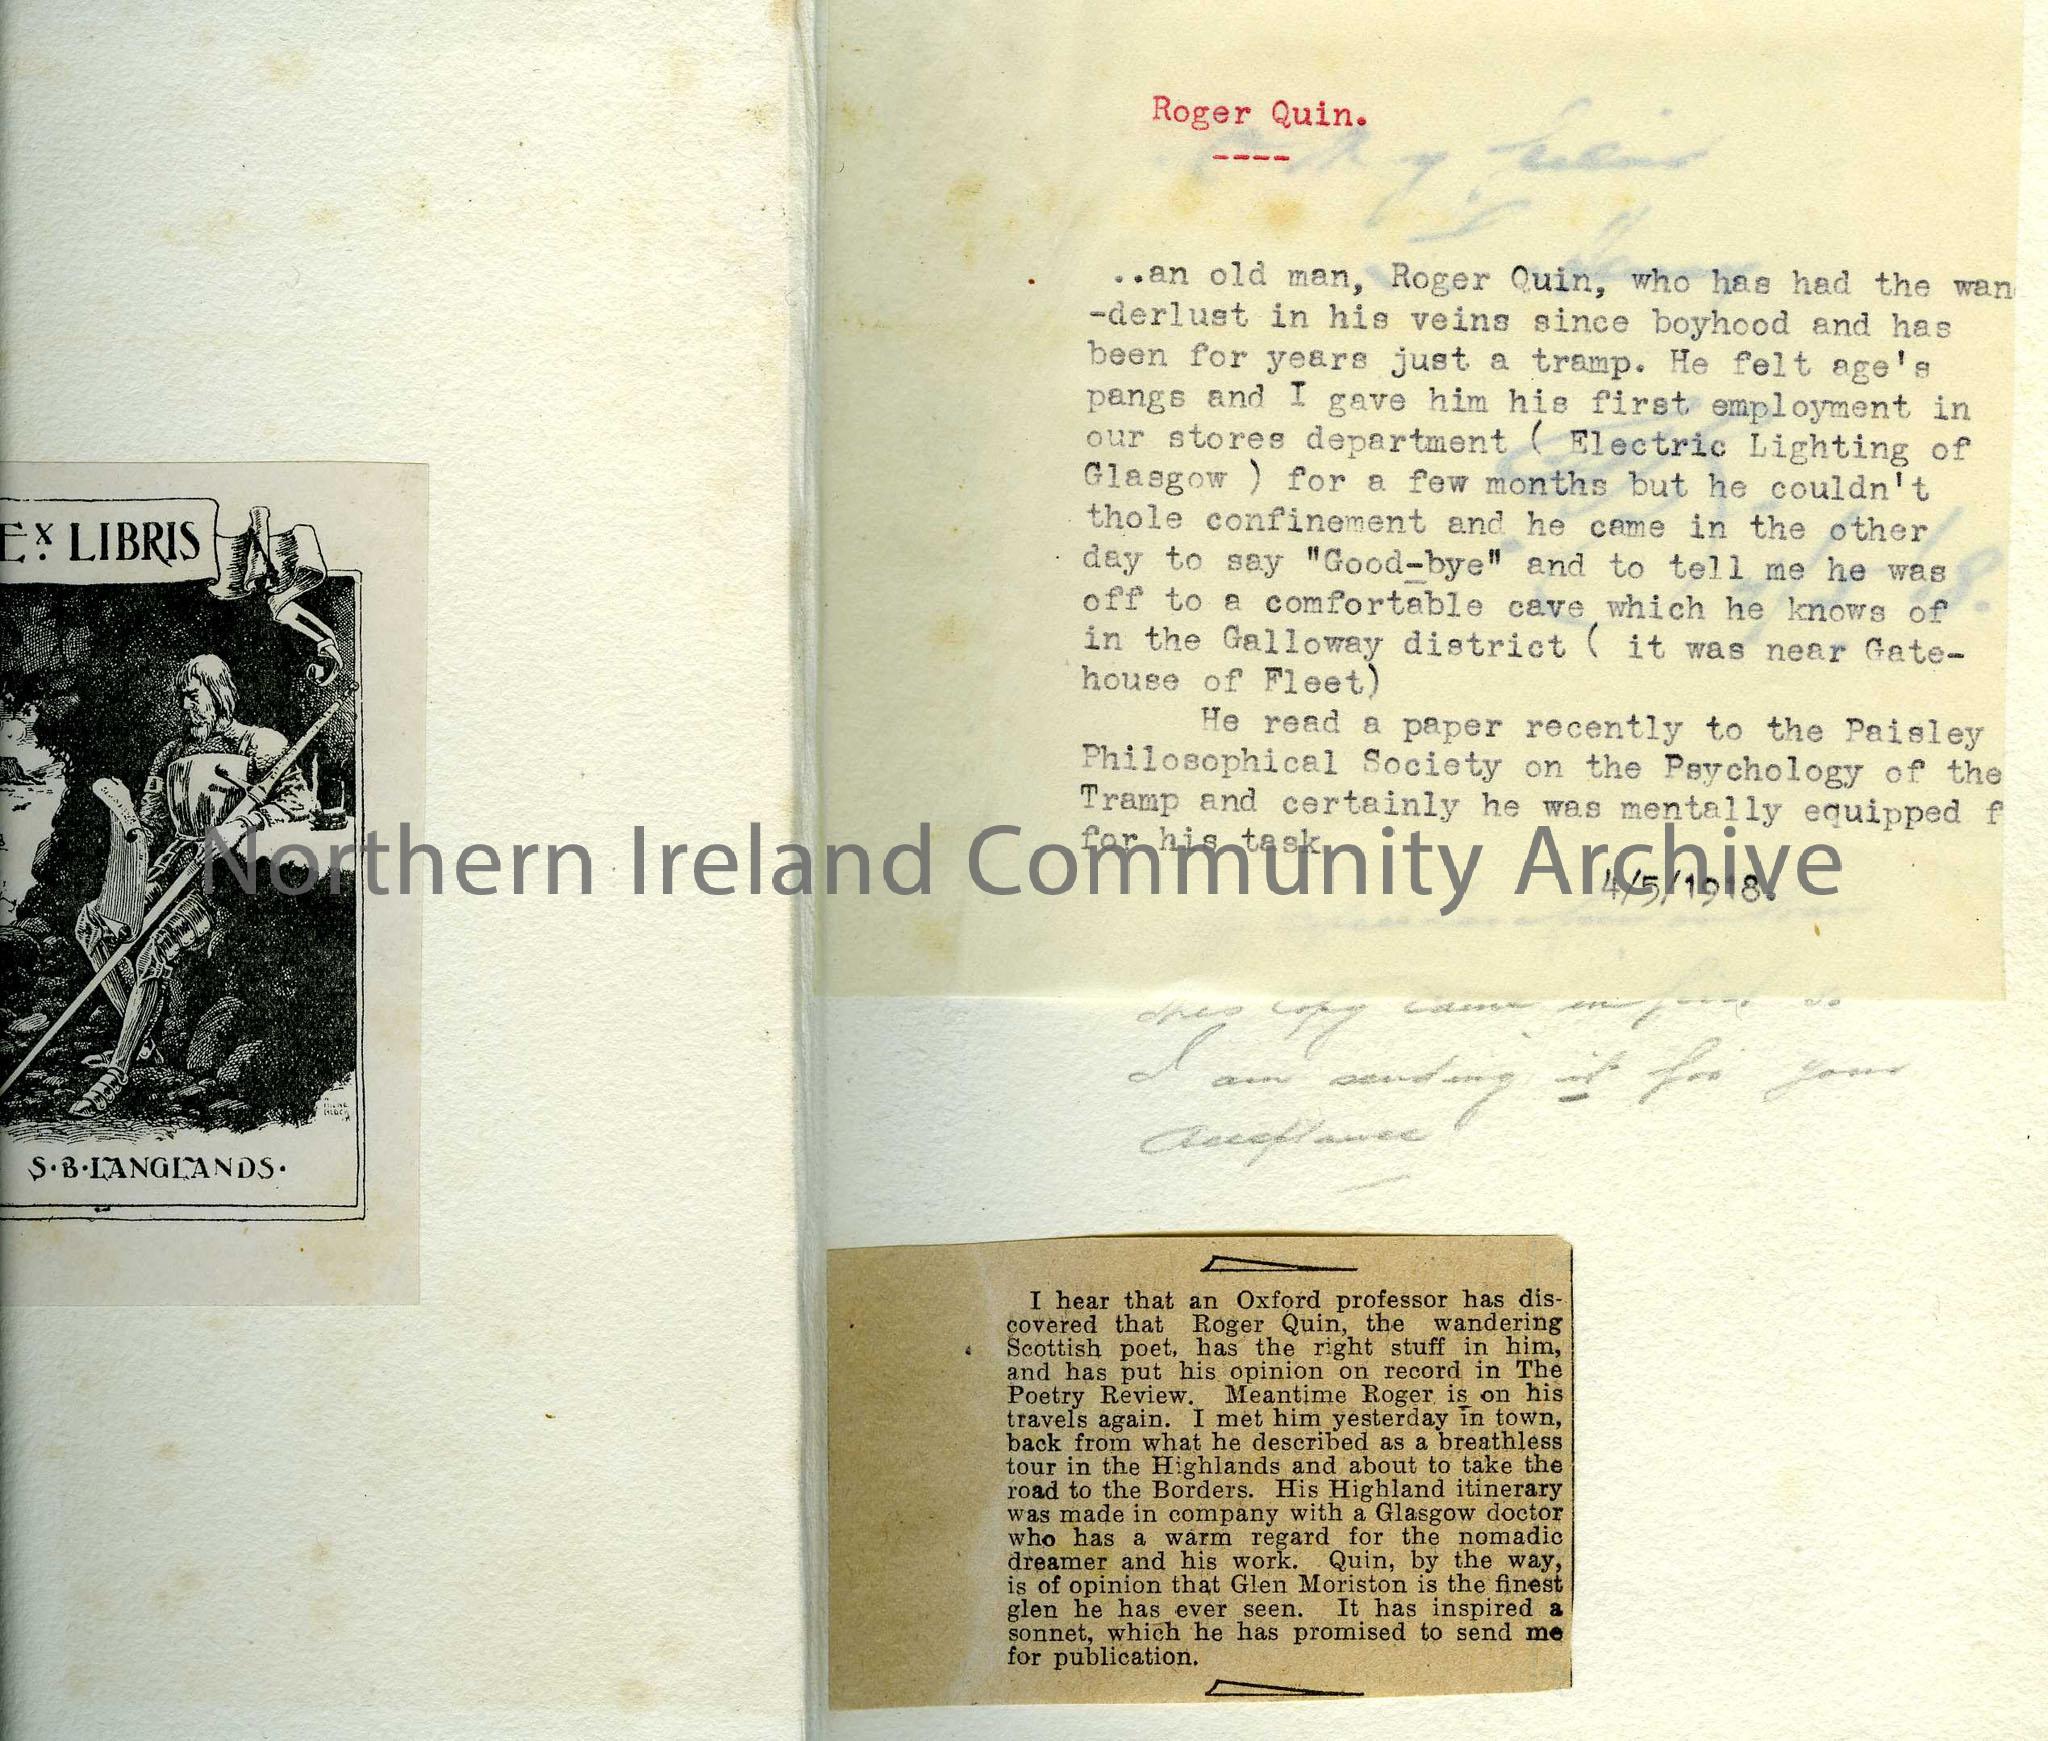 Ex. LIBRIS
S·B·LANGLANDS·
Roger Quin.
----
..an old man, Roger Quin, who has had the wan
-derlust in his veins since boyhood and has
been for years just a tramp. He felt age's
pangs and I gave him his first employment in
our stores department ( Electric Lighting of
Glasgow ) for a few months but he couldn't
thole confinement and he came in the other
day to say "Good-bye" and to tell me he was
off to a comfortable cave which he knows of
in the Galloway district ( it was near Gate-
house of Fleet)
He read a paper recently to the Paisley
Philosophical Society on the Psychology of the
Tramp and certainly he was mentally equipped f
for his task
4/5/1918.
Northern Ireland Community Archive
this copy came in first so
I am sending it for your
acceptance
I hear that an Oxford professor has dis-
covered that Roger Quin, the wandering
Scottish poet, has the right stuff in him,
and has put his opinion on record in The
Poetry Review. Meantime Roger is on his
travels again. I met him yesterday in town,
back from what he described as a breathless
tour in the Highlands and about to take the
road to the Borders. His Highland itinerary
was made in company with a Glasgow doctor
who has a warm regard for the nomadic
dreamer and his work. Quin, by the way,
is of opinion that Glen Moriston is the finest
glen he has ever seen. It has inspired a
sonnet, which he has promised to send me
for publication.